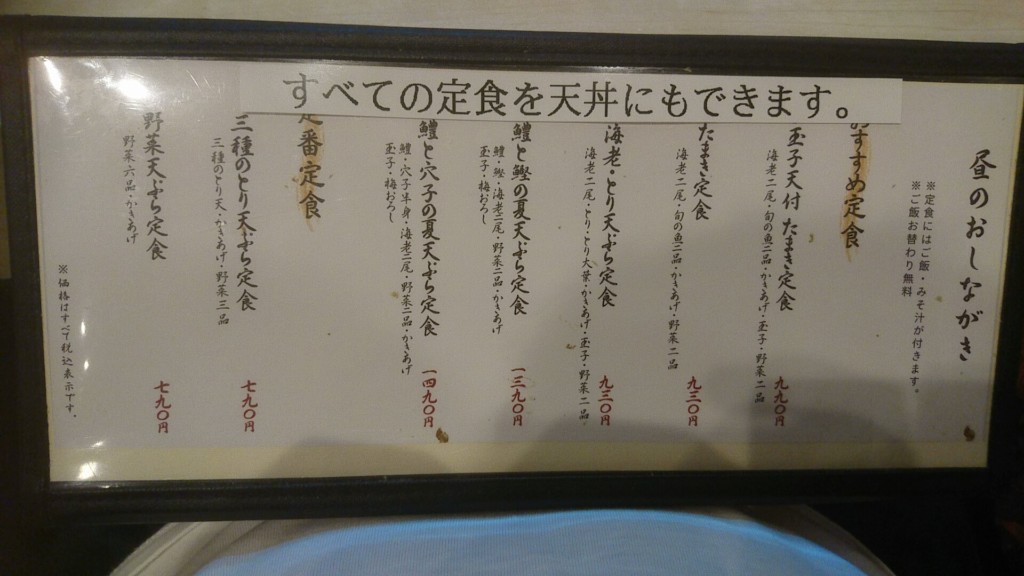 すべての定食を天丼にもできます。
昼のおしながき
※定食にはご飯・みそ汁が付きます。
※ご飯お替わり無料
おすすめ定食
玉子天付 たまき定食
海老二尾・旬の魚二品・かきあげ・玉子・野菜二品
九九〇円
たまき定食
海老二尾・旬の魚二品・かきあげ・野菜二品
九三〇円
海老・とり天ぷら定食
海老二尾・とり・とり大葉・かきあげ・玉子・野菜二品
九三〇円
鱧と鰹の夏天ぷら定食
鱧・鰹・海老二尾・野菜二品・かきあげ
玉子・梅おろし
一三九〇円
鱧と穴子の夏天ぷら定食
鱧・穴子半身・海老二尾・野菜二品・かきあげ
玉子・梅おろし
一四九〇円
定番定食
三種のとり天ぷら定食
三種のとり天・かきあげ・野菜三品
七九〇円
野菜天ぷら定食
野菜六品・かきあげ
七九〇円
※価格はすべて税込表示です。